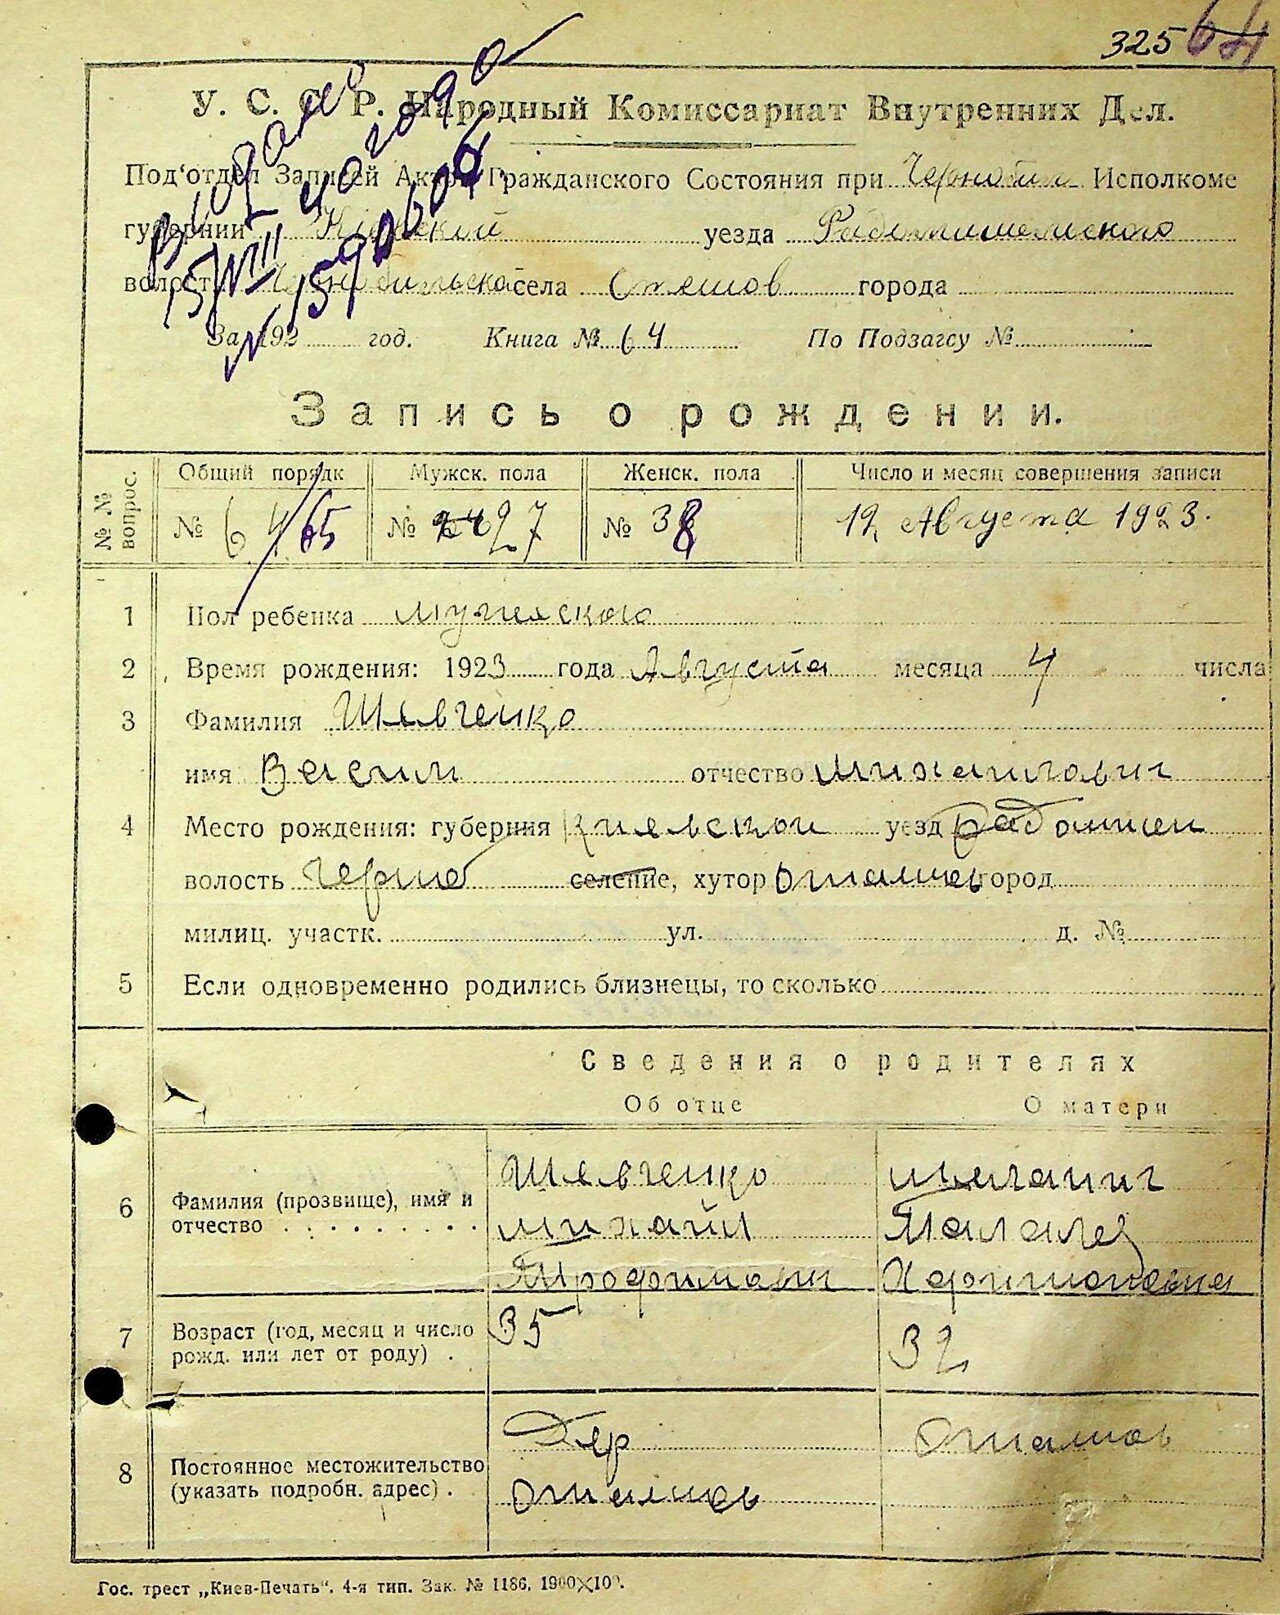 325 64
У. С. С. Р. Народный Комиссариат Внутренних Дел.
Под'отдел Записей Актов Гражданского Состояния при Чернобил Исполкоме
губернии Киевской уезда Радомишельского
волости села Оташов города
За 192 год. Книга № 64 По Подзагсу №
Запись о рождении.
№ № вопрос. Общий порядк Мужск. пола Женск. пола Число и месяц совершения записи
№ 64/65 № 27 № 38 12 Августа 1923.
1 Пол ребенка мужеского
2 Время рождения: 1923 года Августа месяца 4 числа
3 Фамилия Шевченко
имя Васили отчество Михайлович
4 Место рождения: губерния Киевской уезд Радомишел
волость Черноб селение, хутор Оташов город
милиц. участк. ул. д. №
5 Если одновременно родились близнецы, то сколько
Сведения о родителях
Об отце О матери
6 Фамилия (прозвище), имя и отчество Шевченко
Михайл Палагея
Трофимович Харитоновна
7 Возраст (год, месяц и число рожд. или лет от роду) . 35 32
8 Постоянное местожительство (указать подробн. адрес) . Дер Оташов Оташов
Гос. трест „Киев-Печать“. 4-я тип. Зак. № 1186, 1900×100.